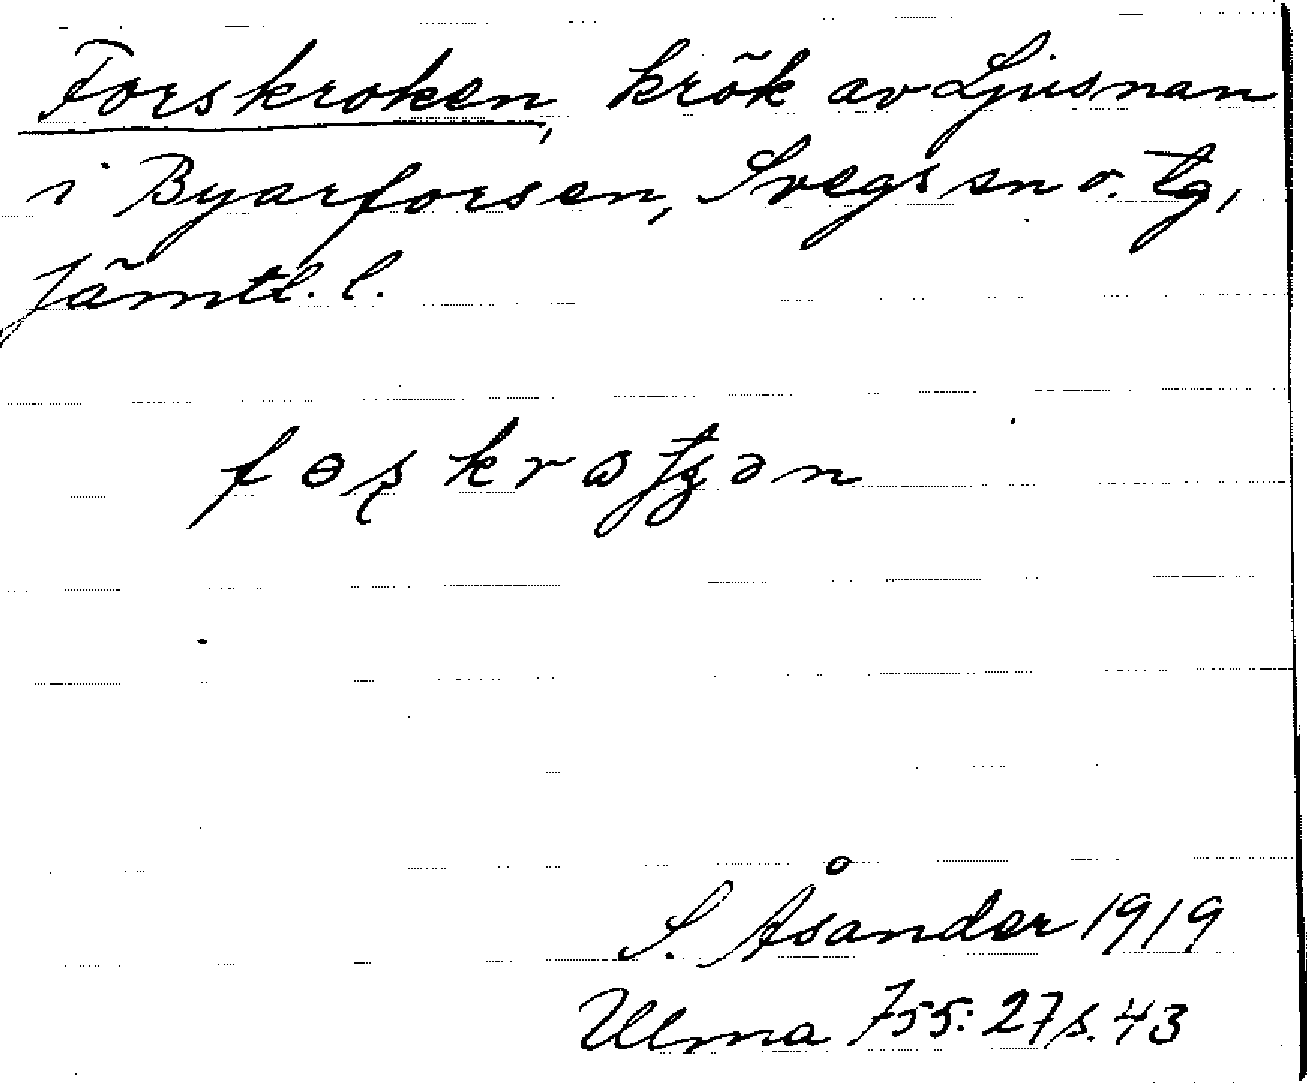 Forskroken, krök av Ljusnan
i Byarforsen, Svegs sn o. tg,
Jämtl. l.
S. Åsander 1919
Ulma 755:27 s. 43